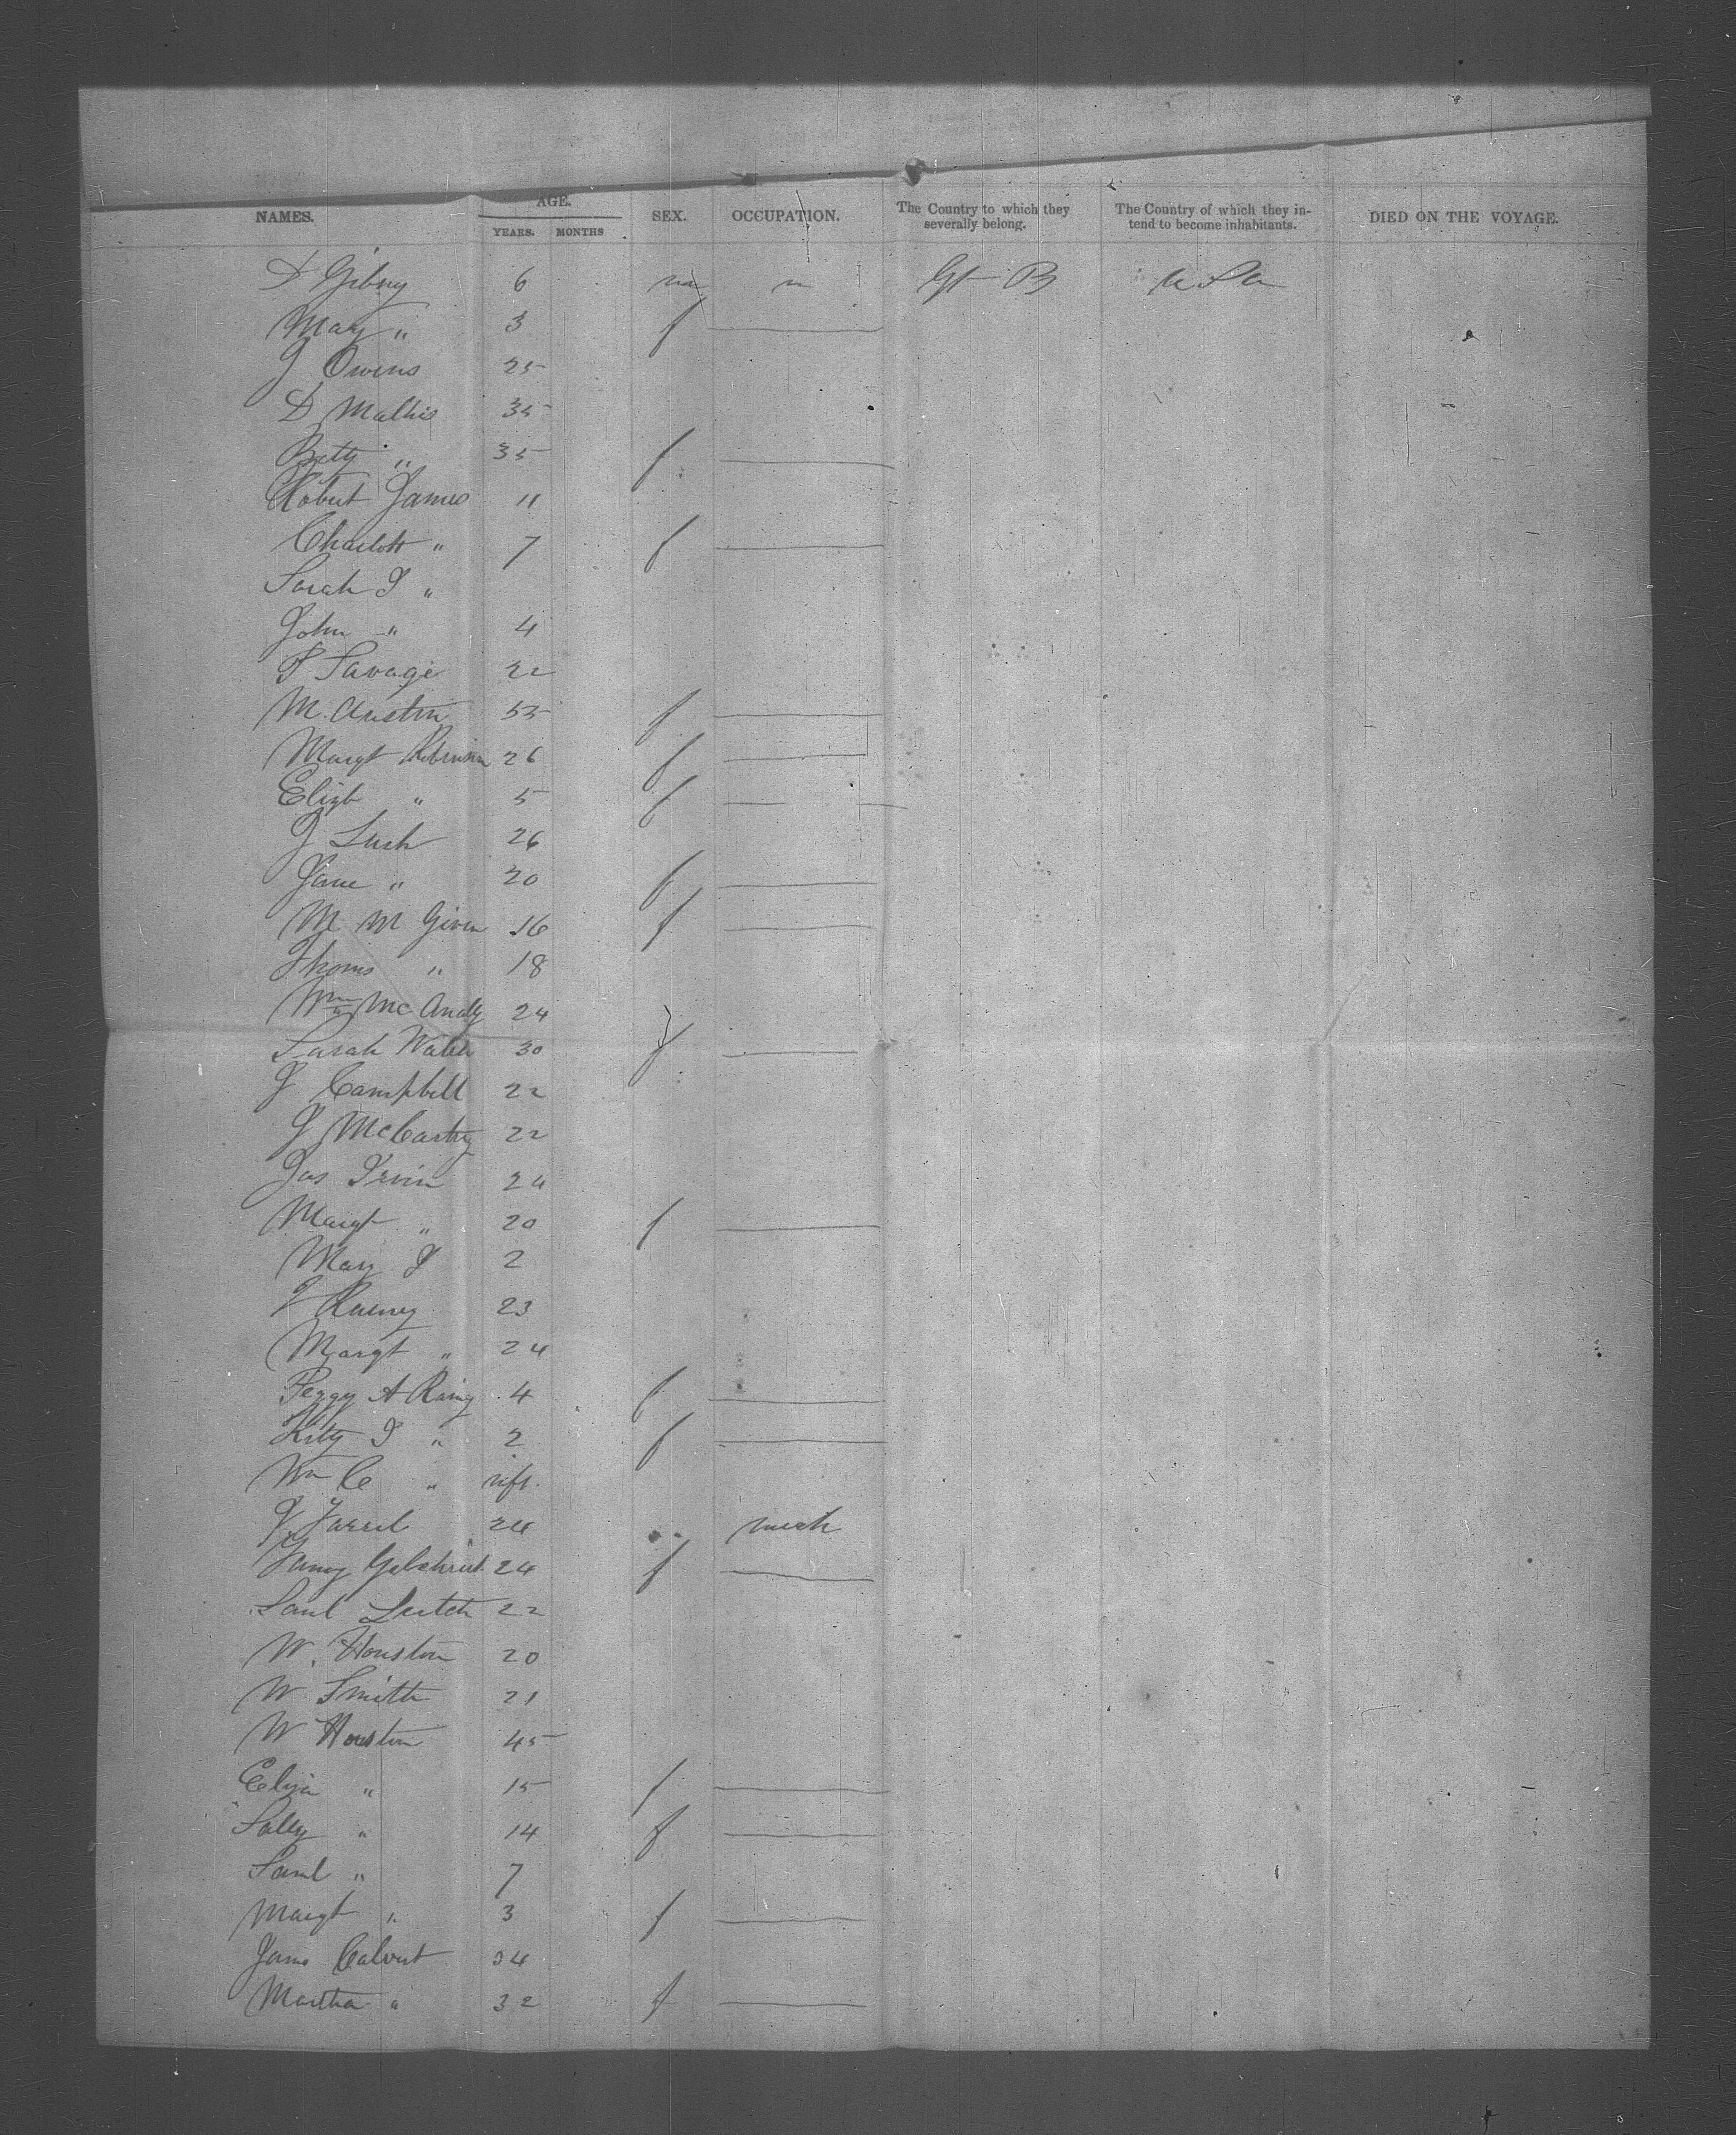 NAMES. AGE. SEX. OCCUPATION. The Country to which they severally belong. The Country of which they intend to become inhabitants. DIED ON THE VOYAGE.
YEARS. MONTHS
D Gibny 6 m Gt B U S A
Mary " 3 f
J Owens 25
D Mathis 35
Betty " 35 f
Robert James 11
Charlott " 7 f
Sarah J "
John " 4
T Savage 22
M. Austin 55 f
Margt Robinson 26 f
Elizb " 5 f
J Lusk 26
Jane " 20 f
M M Given 16 f
Thoms " 18
Wm Mc Anally 24
Sarah Walsh 30 f
J Campbell 22
J McCartny 22
Jas Irvin 24
Margt " 20 f
Mary J 2
J 23
Margt " 24
Peggy A 4 f
Kity J " 2 f
Wm C " inft.
J Farrel 24 mech
Fanny Gilchrist 24 f
Saml 22
W. Houston 20
W Smith 21
W Houston 45
Eliza " 15 f
Sally " 14 f
Saml " 7
Margt " 3 f
James Calvert 34
Martha " 32 f